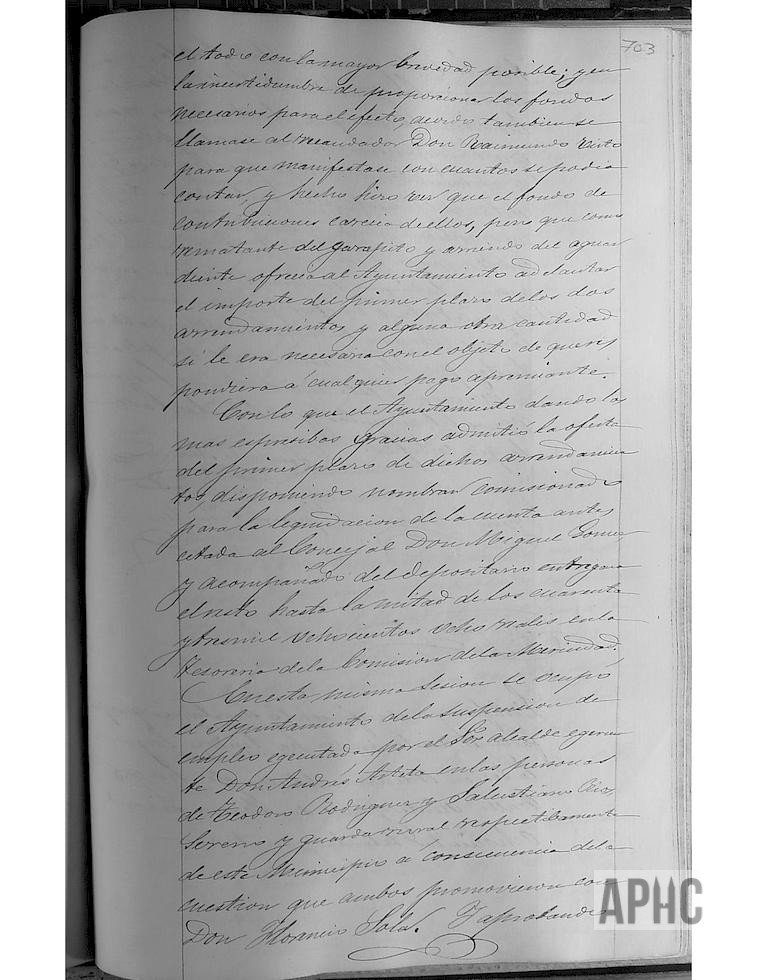 703
el todo con la mayor brevedad posible; y en
la incertidumbre de proporcionar los fondos
necesarios para el efecto, acordó tambien se
llamase al recaudador Don Raimundo
para que manifestase con cuantos se podia
contar, y hecho hizo ver que el fondo de
contribuciones carecia de ellos, pero que como
rematante del garapito y arriendo del aguar
diente ofrecia al Ayuntamiento adelantar
el importe del primer plazo de los dos
arrendamientos y alguna otra cantidad
si le era necesaria con el objeto de que res
pondiera á cualquier pago apremiante.
Con lo que el Ayuntamiento dando las
mas espresibas gracias admitió la oferta
del primer plazo de dichos arrendamien
tos, disponiendo nombrar comisionado
para la liquidacion de la cuenta antes
citada al Concejal Don Miguel Gomez
y acompañado del depositario entregara
el resto hasta la mitad de los cuarenta
y tres mil ochocientos ocho reales en la
tesoreria de la Comision de la Merindad.
En esta misma sesion se ocupó
el Ayuntamiento de la suspension de
empleo egecutada por el Sor alcalde egercien
te Don Andrés Arteta en las personas
de Teodoro Rodriguez y Salustiano
Sereno y guarda rural respectibamente
de este Municipio á consecuencia de la
cuestion que ambos promovieron con
Don Florencio Sola. Y aprobando
APHC